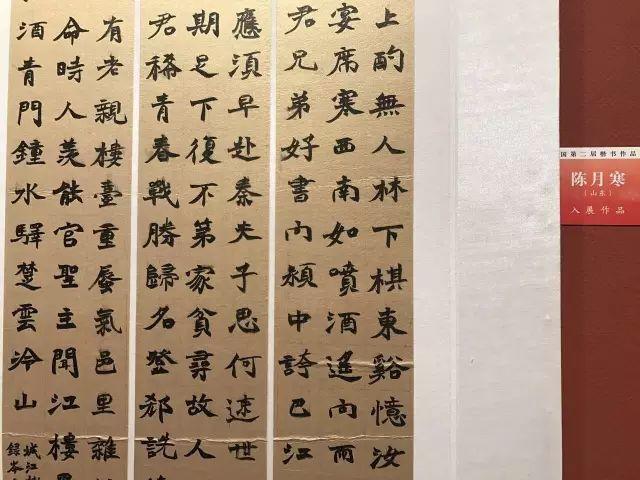 上酌無人林下棋東谿憶汝
宴席寒西南如噴酒遙向雨
君兄弟好書內潁中誇巴江
應須早赴秦夫子思何速世
期足下復不第家貧尋故人
君稀青春戰勝歸名登郄詵
有老親樓臺重蜃氣邑里雜
命時人羨能官聖主聞江樓
酒青門鐘水驛楚雲冷山
城江
錄岑
国第二届楷书作品
陈月寒
（山东）
入展作品